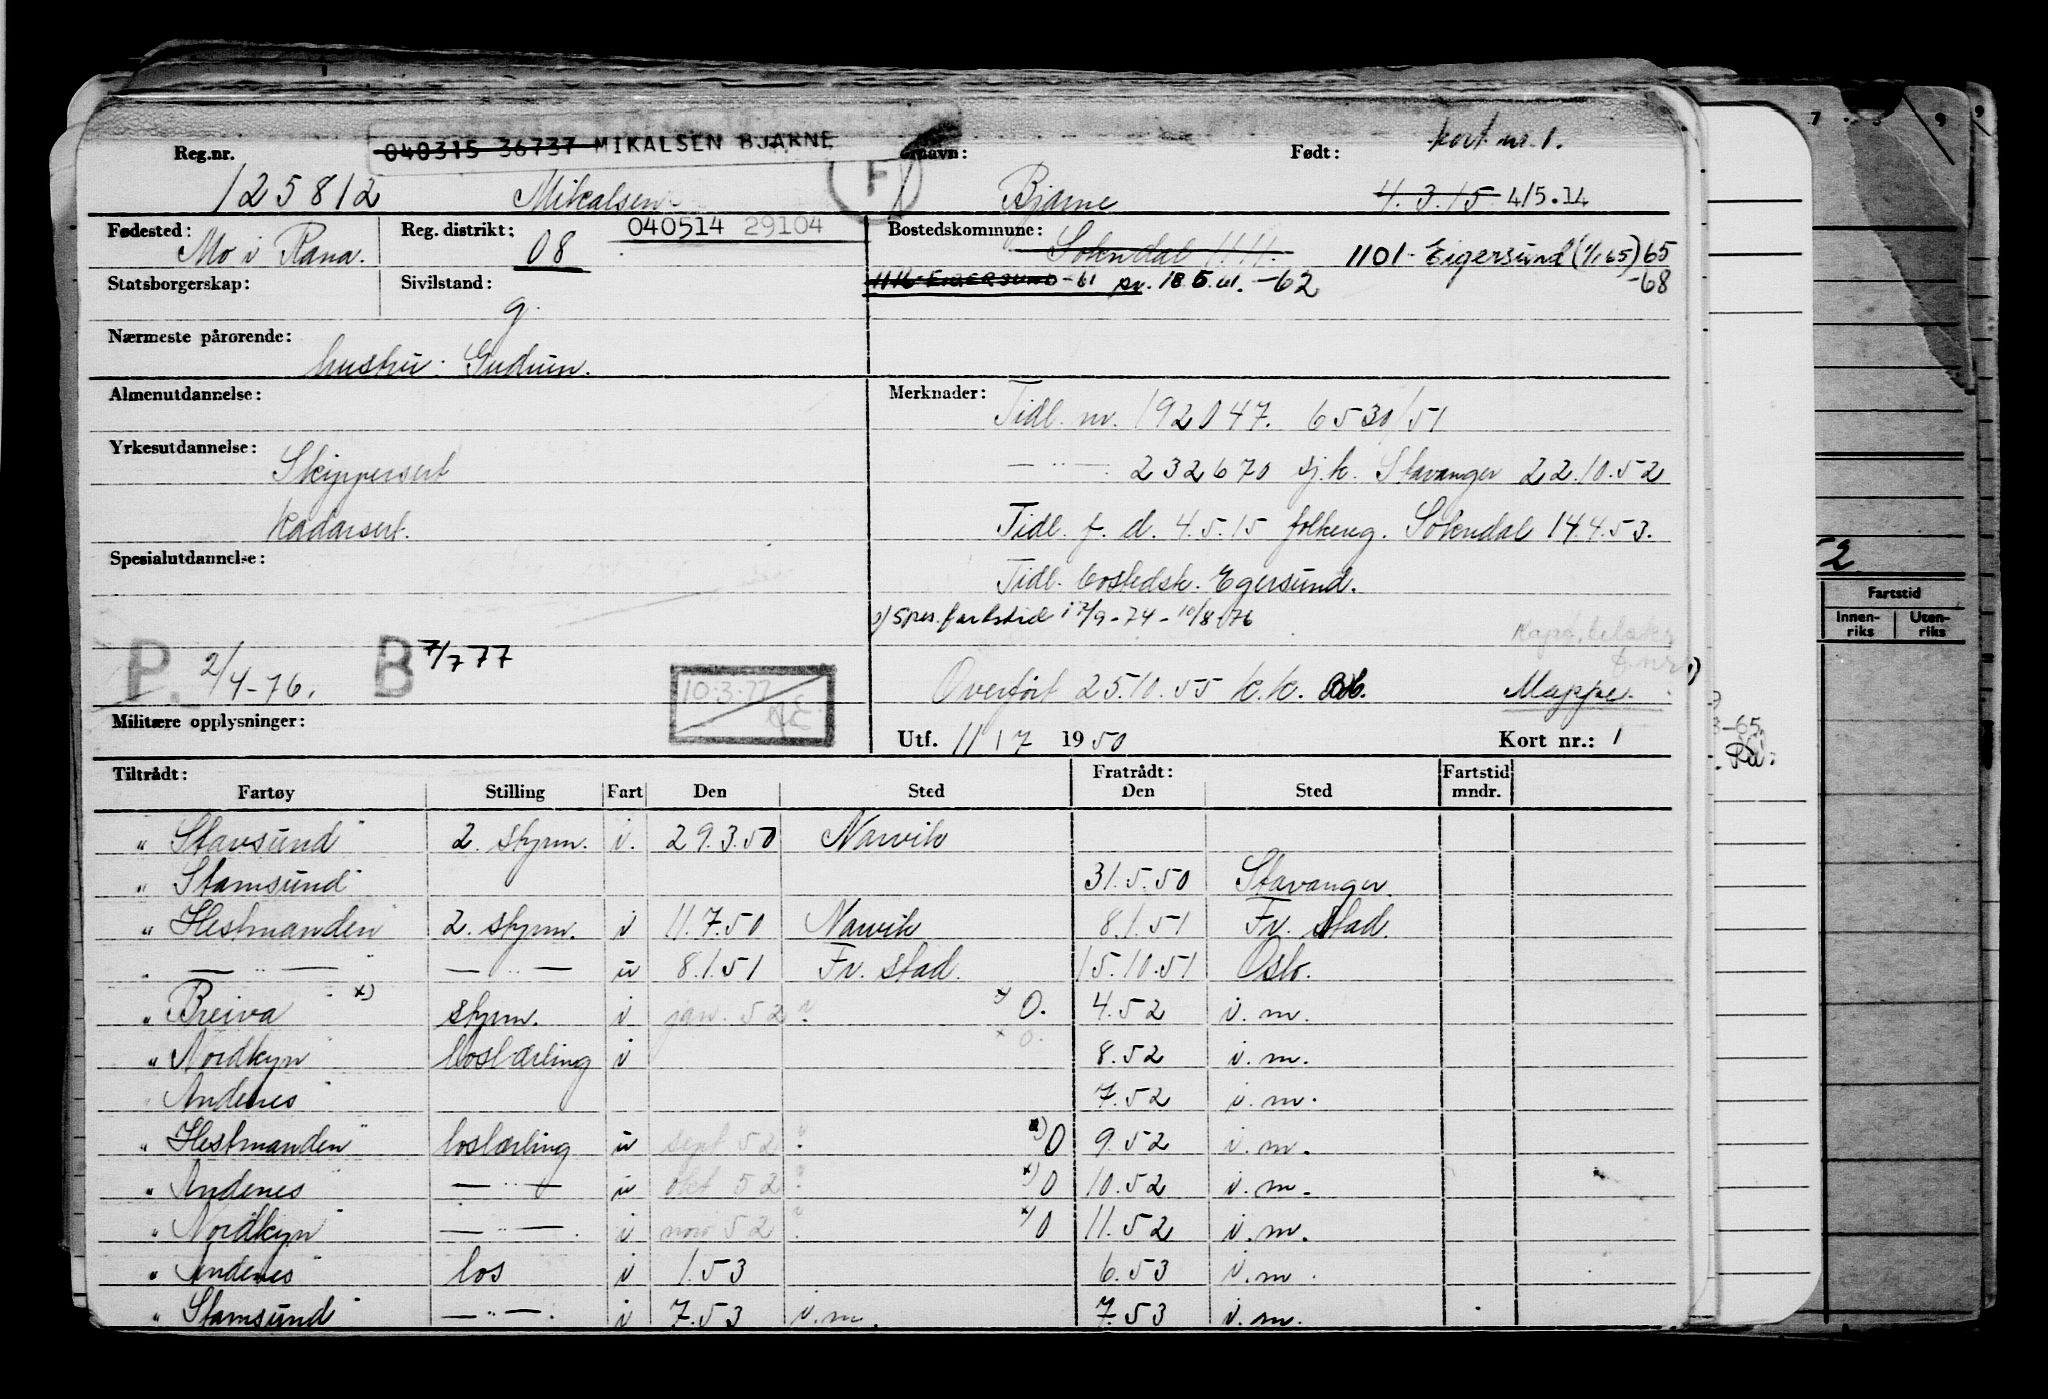 kort nr. 1.
Reg.nr. 040315 36737 MIKALSEN BJARNE Født:
125812 Mikalsen F Bjarne 4.3.15 4/5.14
Fødested: Reg. distrikt: 040514 29104 Bostedskommune:
Mo i Rana. 08 Sokndal 1111. 1101 - Eigersund (1/1 65) 65
Statsborgerskap: Sivilstand: 1116 EIGERSUND -61 -62 -68
g.
Nærmeste pårørende:
hustru: Gudrun.
Almenutdannelse: Merknader:
Tidl. nr. 192047. 6530/51
Yrkesutdannelse:
Skippersert - " - 232670 sj.k. Stavanger 22.10.52
Radarsert. Tidl. f. d. 4.5.15 folkereg. Sokndal 14.4.53.
Spesialutdannelse:
Tidl. bostedsk. Egersund.
x) Spes. fartstid i 7/9-74 - 10/8 76
P. 2/4-76. B 7/7 77 10.3.77
Overført 25.10.55 k.k. Mappe.
Militære opplysninger: Utf. 11/7 1950 Kort nr.: 1
Tiltrådt: Fratrådt: Fartstid
Fartøy Stilling Fart Den Sted Den Sted mndr.
" Stavsund" 2. styrm. i. 29.3.50 Narvik
" Stamsund" 31.5.50 Stavanger.
" Hestmanden" 2. styrm. i 11.7.50 Narvik 8.1.51 Fr. stad.
" — " — — " — u 8.1.51 Fr. stad. 15.10.51 Oslo.
" Breiva" x) styrm. i jan. 52 ? x) O. 4.52 i. m.
" Nordkyn" loslærling i x O. 8.52 i. m.
" Andenes" 7.52 i. m.
" Hestmanden" loslærling u sept 52 ? x) O 9.52 i. m.
" Andenes" — " — u okt 52 ? x) O 10.52 i. m.
" Nordkyn" — " — i nov 52 ? x) O 11.52 i. m.
" Andenes" los i 1.53 6.53 i. m.
" Stamsund" — " — i 7.53 i. m. 7.53 i. m.
Fartstid
Innen-riks Uten-riks